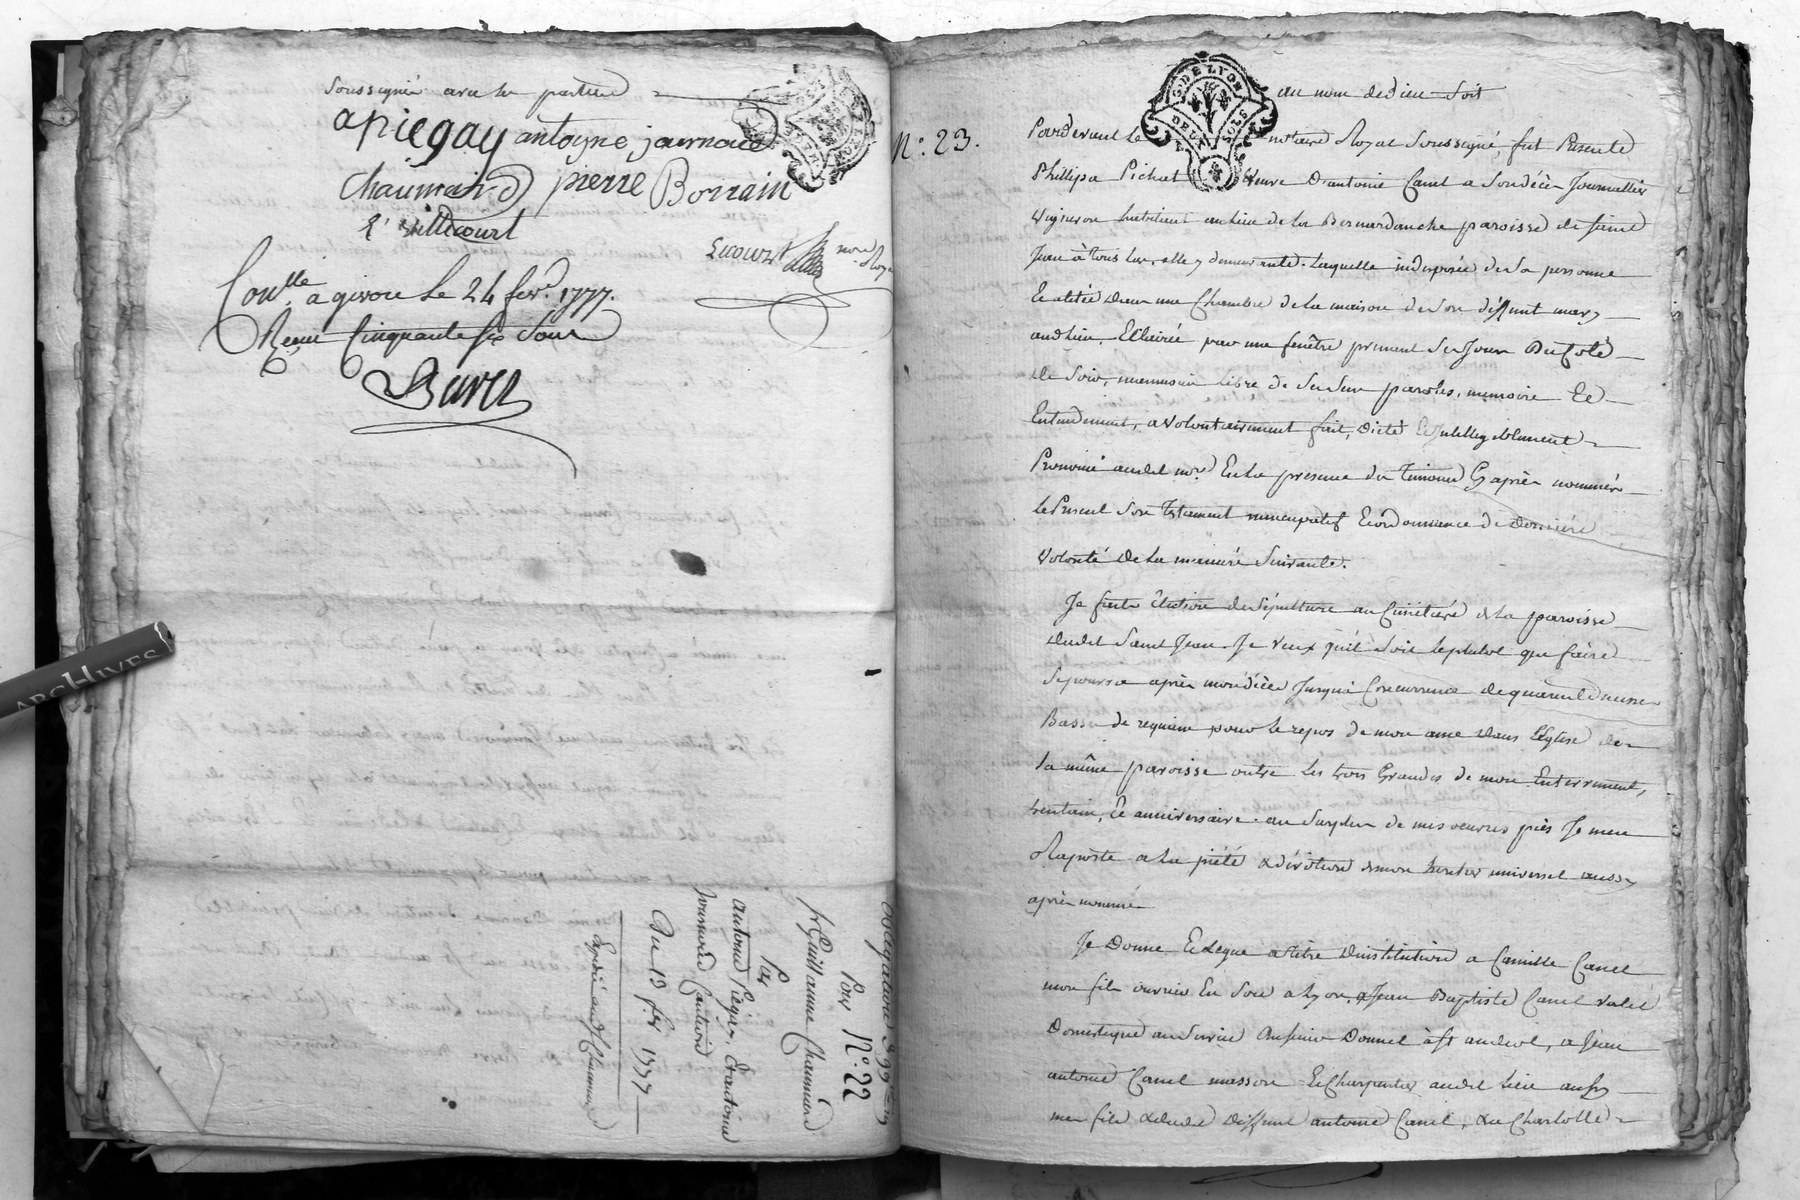 soussigné avec les parties
apiegay antoine journoud
Chaumaird pierre Borrain
E. villecourt
Lacourt nore Royal
Conlle a givors le 24 fevr. 1777.
Reçu Cinquante six sous
Bavet
Pour N.° 22
fr Guillaume Chaumaird
Par
antoine Piegay, & antoine
Journoud
Du 13 f.er 1777
Expédié aud. Chaumaird
G. DE LYON
DEUX SOLS
au nom de dieu Soit
N.° 23. Pardevant le notaire Royal Soussigné, fut Presente
Phillipa Pichut Veuve D'antoine Canel a Son décès Journallier
Vigneron habitant au lieu de la Bernardanche paroisse de saint
Jean à Tous las, elle y demeurante. Laquelle indisposée de sa personne
Et alitée dans une Chambre de la maison de son deffunt mary
aud lieu, Éclairée par une fenêtre prenant son Jour Du Coté
de soir, neamoins libre de ses sens paroles, memoire Et
Entendement, a volontairement fait, dicté Et Intelligiblement
Prononcé audit no.re En la presence des Temoins Cy après nommés
le Present Son Testament nuncupatif Et ordonnance de derniere
Volonté de la maniere Suivante.
Je fais élection de sépulture au Cimetiere de la paroisse
dudit Saint Jean. Je veux qu'il soit le plutot que faire
se pourra après mon décès Jusqu'à Concurrence de quarante messes
Basses de requiem pour le repos de mon ame dans l'Eglise de
la même paroisse outre les trois Grandes de mon Enterrement,
trentain, & anniversaire. au surplus de mes oeuvres pies Je m'en
Raporte a la piété & dévotion de mon heritier universel cy
après nommé
Je Donne Et Legue a titre D'institution a Camille Canel
mon fils ouvrier En Soie a Lyon, a Jean Baptiste Canel valet
Domestique au Service Du Sieur Donnet à St andeol, a Jean
antoine Canel masson Et Charpentier audit lieu aussy
mes fils & dudit Deffunt antoine Canel, & a Charlotte